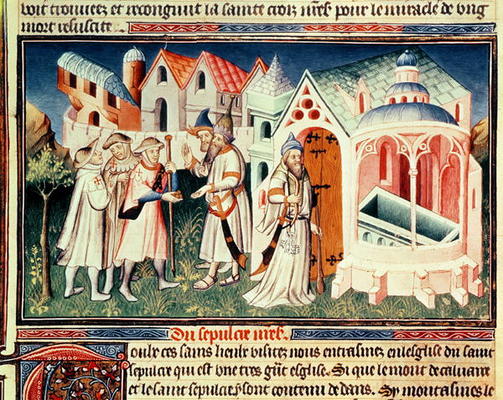 voit trouuees et recongnut la sainte croix nr̃e s. pour le miracle de vng
mort resuscite.
Du sepulcre nr̃e s.
Toulx ces sains lieulx visitez nous entrasmes en leglise du saint
sepulcre qui est vne tres grãt eglise. Si que le mont de caluaire
et le saint sepulcre y sont contenu dedans. Sy montasmes le